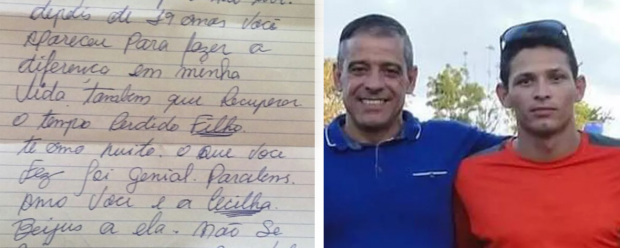 depois de 19 anos você
apareceu para fazer a
diferença em minha
vida. tambem que recuperar
o tempo perdido Filho
te amo muito. o que você
Fez foi genial. Parabens.
Amo você e a Cecilha.
Beijus a ela. Não se